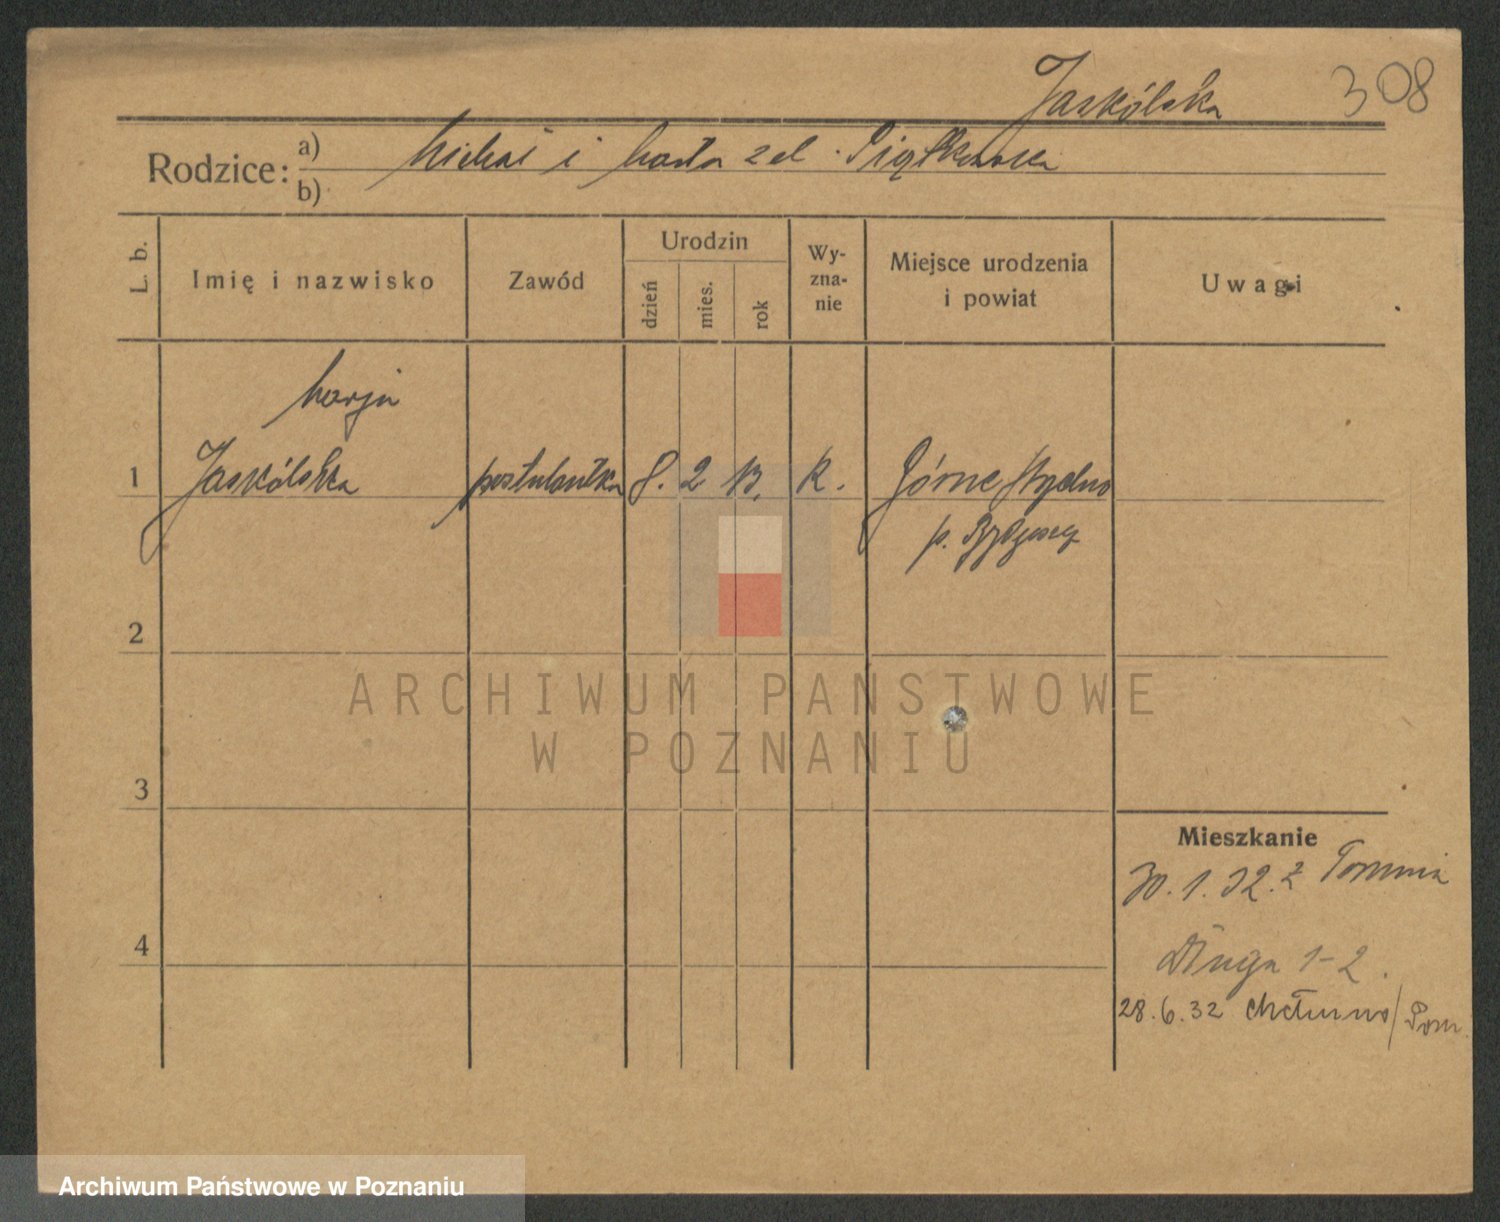 Jaskólska 308
Rodzice: a) Michał i Marta z d. Piątkowska
b)
L. b.
Imię i nazwisko
Zawód
Urodzin
dzień
mies.
rok
Wy-
zna-
nie
Miejsce urodzenia
i powiat
Uwagi
Marja
1 Jaskólska postulantka 8. 2 13. R. Górne
p. Bydgoszcz
2
3
4
Mieszkanie
30.1.32. z Torunia
Długa 1-2.
28.6.32 Chełmno/Pom
ARCHIWUM PAŃSTWOWE
W POZNANIU
Archiwum Państwowe w Poznaniu